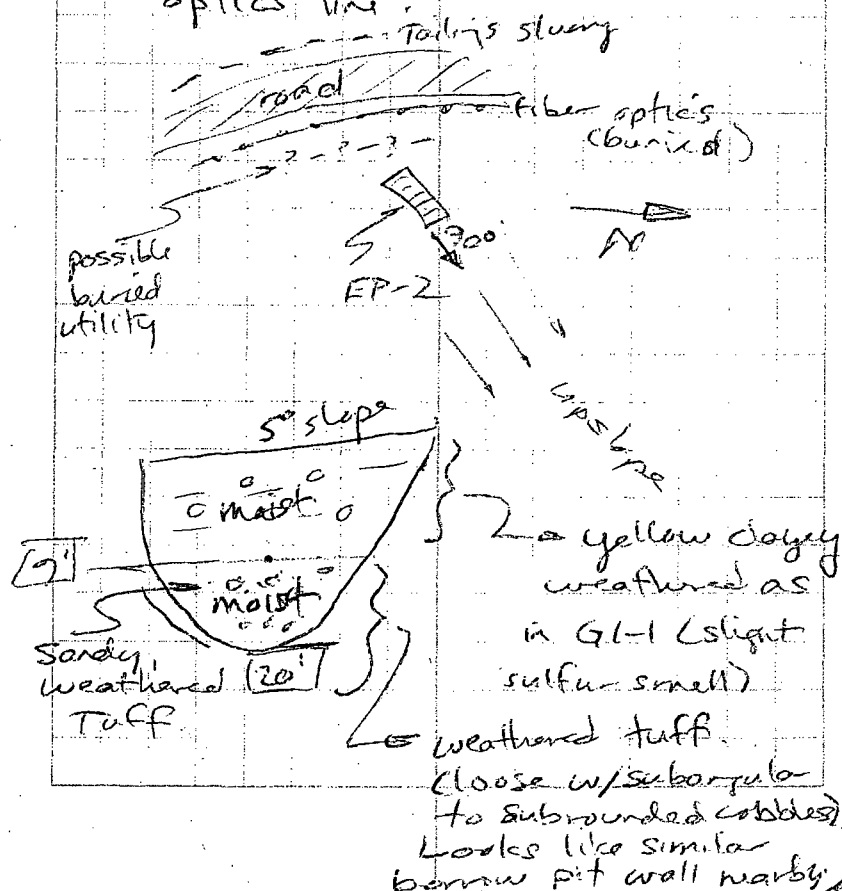 optics line.
Tailings slurry
road
fiber optics
(buried)
? - ? - ?
possible
buried
utility
EP-2
N
upslope
5° slope
moist
9'
moist
Sandy,
weathered
Tuff
20'
yellow clayey
weathered as
in G1-1 (slight
sulfur smell)
weathered tuff
(loose w/subangular
to subrounded cobbles)
Looks like similar
borrow pit wall nearby